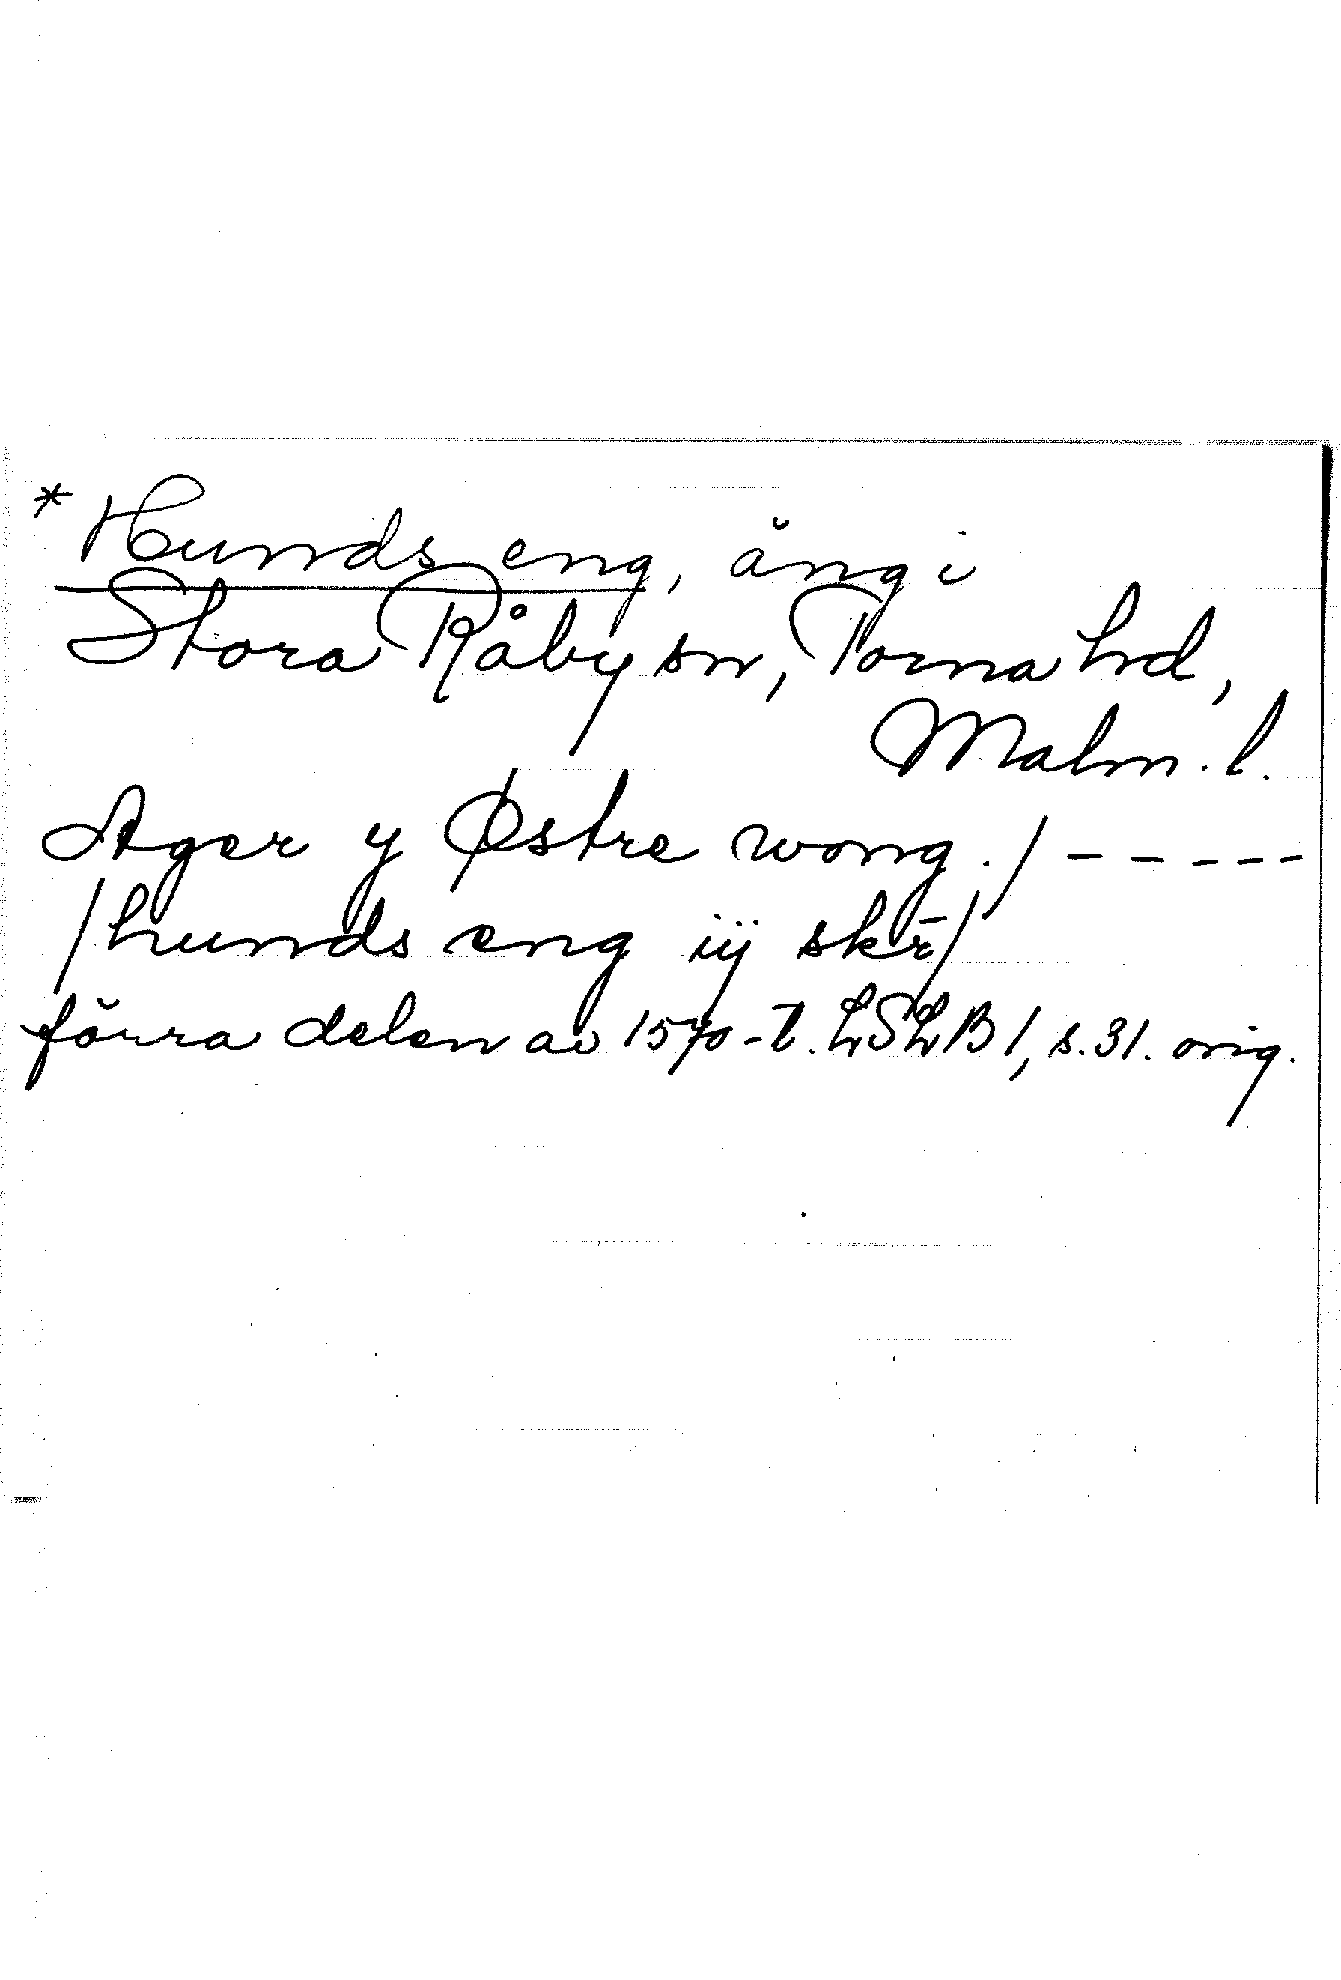 * Hunds eng, äng i
Stora Råby sn, Torna hd,
Malm. l.
Ager y Østre wong . / - - - - -
/ hunds eng iij skr̄ /
förra delen av 1570-t. LSLB 1, s. 31. orig.